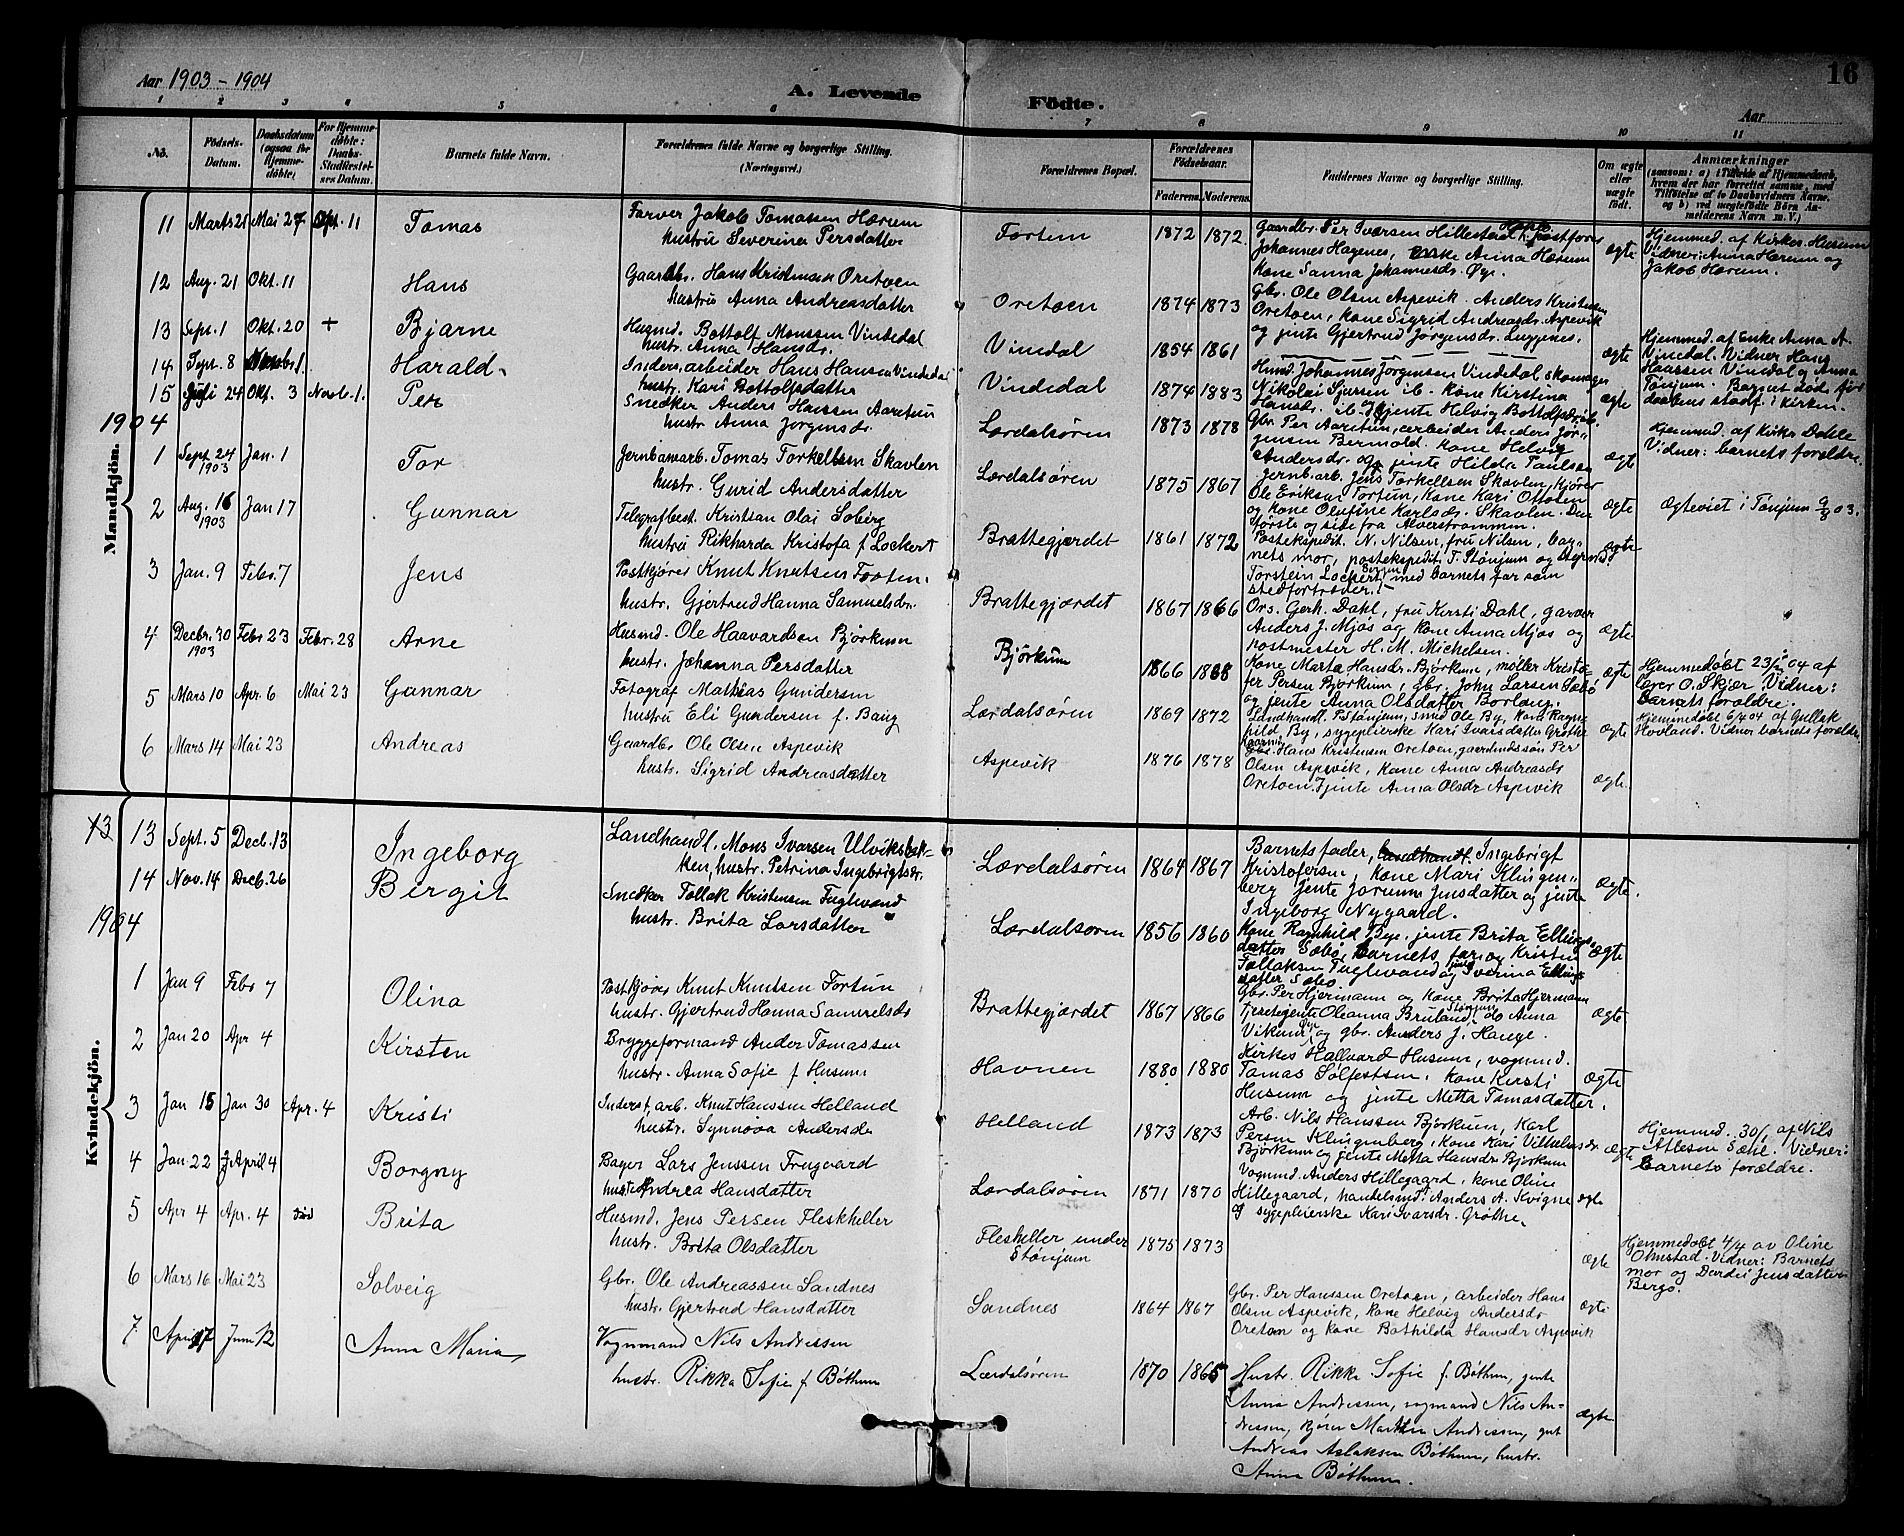 Aar 1903 - 1904
A. Levende
Födte.
16
Aar
1 2 3 4 5 6 7 8 9 10 11
No.
Födsels-
Datum.
Daabsdatum
(ogsaa for
Hjemme-
döbte)
For Hjemme-
döbte:
Daabs-
Stadfæstel-
ses Datum.
Barnets fulde Navn.
Forældrenes fulde Navne og borgerlige Stilling.
(Næringsvei.)
Forældrenes Bopæl.
Forældrenes
Födselsaar.
Faderens. Moderens.
Faddernes Navne og borgerlige Stilling.
Om ægte
eller
uægte
födt.
Anmærkninger
(saasom: a) i Tilfælde af Hjemmedaab,
hvem der har forrettet samme, med
Tilföielse af to Daabsvidners Navne.
og b) ved uægtefödte Börn An-
melderens Navn m. V.)
Mandkjön.
11 Marts 21 Mai 27 Spt. 11 Tomas
Farver Jakob Tomassen Hærum
hustru Severina Persdatter
Fortem 1872 1872
Gaardbr. Per Iversen Hillestad
Johannes Hagenes, Anna Hærum
Kone Sanna Johannesdr. Øye.
ægte
Hjemmed. af Kirkes. Husum
Vidner: Anna Hærum og
Jakob Hærum.
12 Aug. 21 Okt. 11 Hans
Gaardbr. Hans Kristensen Oretoen
hustru Anna Andreasdatter
Oretoen 1874 1873
Gbr. Ole Olsen Aspevik. Anders Kristensen
Oretoen, kone Sigrid Andreasdr. Aspevik
og jente Gjertrud Jørgensdr. Luggenes.
ægte
13 Sept. 1 Okt. 20 + Bjarne
Husmd. Bottolf Monssen Vindedal
hustr. Anna Hansdr.
Vindal 1854 1861
Hjemmed. af Enke Anna A.
Vindedal. Vidner Hans
Hanssen Vindedal og Anna
Tønjum. Barnet død før
daabens stadf. i kirken.
14 Sept. 8 Novbr. 1 Harald
Inders, arbeider Hans Hansen Vindedal
hustr. Kari Bottolfsdatter
Vindedal 1874 1883
Husmd. Johannes Jørgenssen Vindedal, skomager
Nikolai Sjursen ib. Kone Kirstina
Hansdr. ib. Jente Helvig Bottolfsdr. ib.
ægte
15 Juli 24 Okt. 3 Novb. 1. Per
Snedker Anders Hanssen Aaretun
hustr. Anna Jørgensdr.
Lærdalsören 1873 1878
Gbr. Per Aaretun, arbeider Anders Jør-
gensen Bermold. Kone Helvig
Andersdr. og jente Hilda Paulsen
ægte
Hjemmed. af Kirks. Dahle
Vidner: barnets forældre.
1904
1 Sept. 24 1903 Jan. 1 Tor
Jernbanearb. Tomas Torkellsen Skavlen
hustr. Gurid Andersdatter
Lærdalsören 1875 1867
Jernb. arb. Jens Torkellsen Skavlen, kjører
Ole Eriksen Tortun, Kone Kari Ottosen
og Kone Olufine Karlsdr. Skavlen. Den
første og siste fra Alverstrømmen.
ægte
Ægteviet i Tønjum 9/8 03.
2 Aug. 16 1903 Jan 17 Gunnar
Telegrafbest. Kristian Olai Soberg
hustru Rikharda Kristofa f. Lockert
Brattegjærdet 1861 1872
Postekspedit. N. Nilsen, fru Nilsen, bar-
nets mor, postekspedit. T. Stønjum og
Torstein Lockert, med barnets far som
stedfortræder.
ægte
3 Jan. 9 Febr. 7 Jens
Postkjører Knut Knutsen Forten.
hustr. Gjertrud Hanna Samuelsdr.
Brattegjærdet 1867 1866
Ors. Gerh. Dahl, fru Kirsti Dahl, garver
Anders J. Mjøs og kone Anna Mjøs og
postmester H. M. Michelsen.
ægte
4 Decbr. 30 1903 Febr 23 Febr. 28 Arne
Husmd. Ole Haavardsen Bjørkum
hustr. Johanna Persdatter
Bjørkum 1866 1868
Kone Marta Hansdr. Bjørkum, møller Kristo-
fer Persen Bjørkum, gbr. John Larsen Sæbø
og jente Anna Olsdatter Borlaug.
ægte
Hjemmedøbt 23/2 04 af
lærer O. Skjær. Vidner:
barnets forældre.
5 Mars 10 Apr. 6 Mai 23 Gunnar
Fotograf Mathias Gundersen
hustru Eli Gundersen f. Bang
Lærdalsören 1869 1872
Landhandl. P. Stønjum, smed Ole By, kone Ragn-
hild By, sygepleierske Kari Ivarsdatter Grøthe
ægte
Hjemmedøbt 6/4 04 af Gullak
Hovland. Vidner barnets forældre.
6 Mars 14 Mai 23 Andreas
Gaardbr. Ole Olsen Aspevik
hustr. Sigrid Andreasdatter
Aspevik 1876 1878
Gbr. Hans Kristensen Oretoen, gaardmdssøn Per
Olsen Aspevik, kone Anna Andreasds
Oretoen. Jente Anna Olsdr Aspevik
ægte.
Kvindekjön.
13 13 Sept. 5 Decb. 13 Ingeborg
Landhandl. Mons Ivarsen Ulviksbak-
ken, hustr. Petrina Ingebrigtsdr.
Lærdalsören 1864 1867
Barnets fader, landhandl. Ingebrigt
Kristofersen, Kone Mari Klingen-
berg jente Jorunn Jensdatter og jente
Ingeborg Nygaard.
Ægte.
14 Nov. 14 Decb. 26 Bergit
Snedker Tollak Kristensen Fuglevand
hustr. Brita Larsdatter
Lærdalsören 1856 1860
Kone Ragnhild Bye, jente Brita Ellings-
datter Sæbø, barnets far og Kristen
Tollaksen Fuglevand og jente Sverina Ellings-
datter Sæbø.
Ægte
1904
1 Jan 9 Febr 7 Olina
Postkjører Knut Knutsen Fortun
hustr. Gjertrud Hanna Samuelsds
Brattegjærdet 1867 1866
Gbr. Per Hjermann og kone Brita Hjermann
Tjenestejente Oleanna Bruland, do Anna
Vikum og gbr. Anders J. Hauge.
Ægte
2 Jan 20 Apr 4 Kirsten
Bryggeformand Ander Tomassen
hustr. Anna Sofie f Husum
Havnen 1880 1880
Kirkes. Hallvard Husum, vognmd.
Tomas Sølfestsen, kone Kirsti
Husum og jente Metta Tomasdatter.
Ægte
3 Jan 15 Jan 30 Apr. 4 Kristi
Inderst, arb. Knut Hanssen Helland
hustr. Synnøva Andersdr
Helland 1873 1873
Arb. Nils Hanssen Bjørkum, Karl
Persen Klingenberg, Kone Kari Vilhelmsdr
Bjørkum og jente Metta Hansdr Bjørkum
ægte
Hjemmed. 30/1 af Nils
Atlesen Sæhe. Vidner:
barnets forældre.
4 Jan. 22 April 4 Borgny
Bager Lars Jenssen Frugaard
hustr Andrea Hansdatter
Lærdalsören 1871 1870
Vognmd. Anders Hillegaard, kone Oline
Hillegaard, handelsmd. Anders A. Kvigne
og sygepleierske Kari Ivarsdr. Grøthe.
ægte
5 Apr 4 Apr. 4 død Brita
Husmd. Jens Persen Fleskheller
hustr. Brita Olsdatter
Flesheller under
Stønjum 1875 1873
ægte
Hjemmedøbt 4/4 av Oline
Ohnstad. Vidner: Barnets
mor og Dordei Jensdatter
Bergo.
6 Mars 16 Mai 23 Solveig
Gbr. Ole Andreassen Sandnes
hustr. Gjertrud Hansdatter
Sandnes 1864 1867
Gbr. Per Hanssen Oretoen, arbeider Hans
Olsen Aspevik, kone Helvig Andersdr
Oretoen og kone Bothilda Hansdr Aspevik
ægte
7 April 17 Juni 12 Anna Maria
Vognmand Nils Andressen
hustr. Rikka Sofie f Bøthun
Lærdalsören 1870 1865
Hustr. Rikka Sofie f. Bøthun, jente
Anna Andressen, vogmand Nils An-
dressen, kjører Marthin Andressen, gut
Andreas Aslaksen Bøthun, hustr.
Anna Bøthun.
ægte